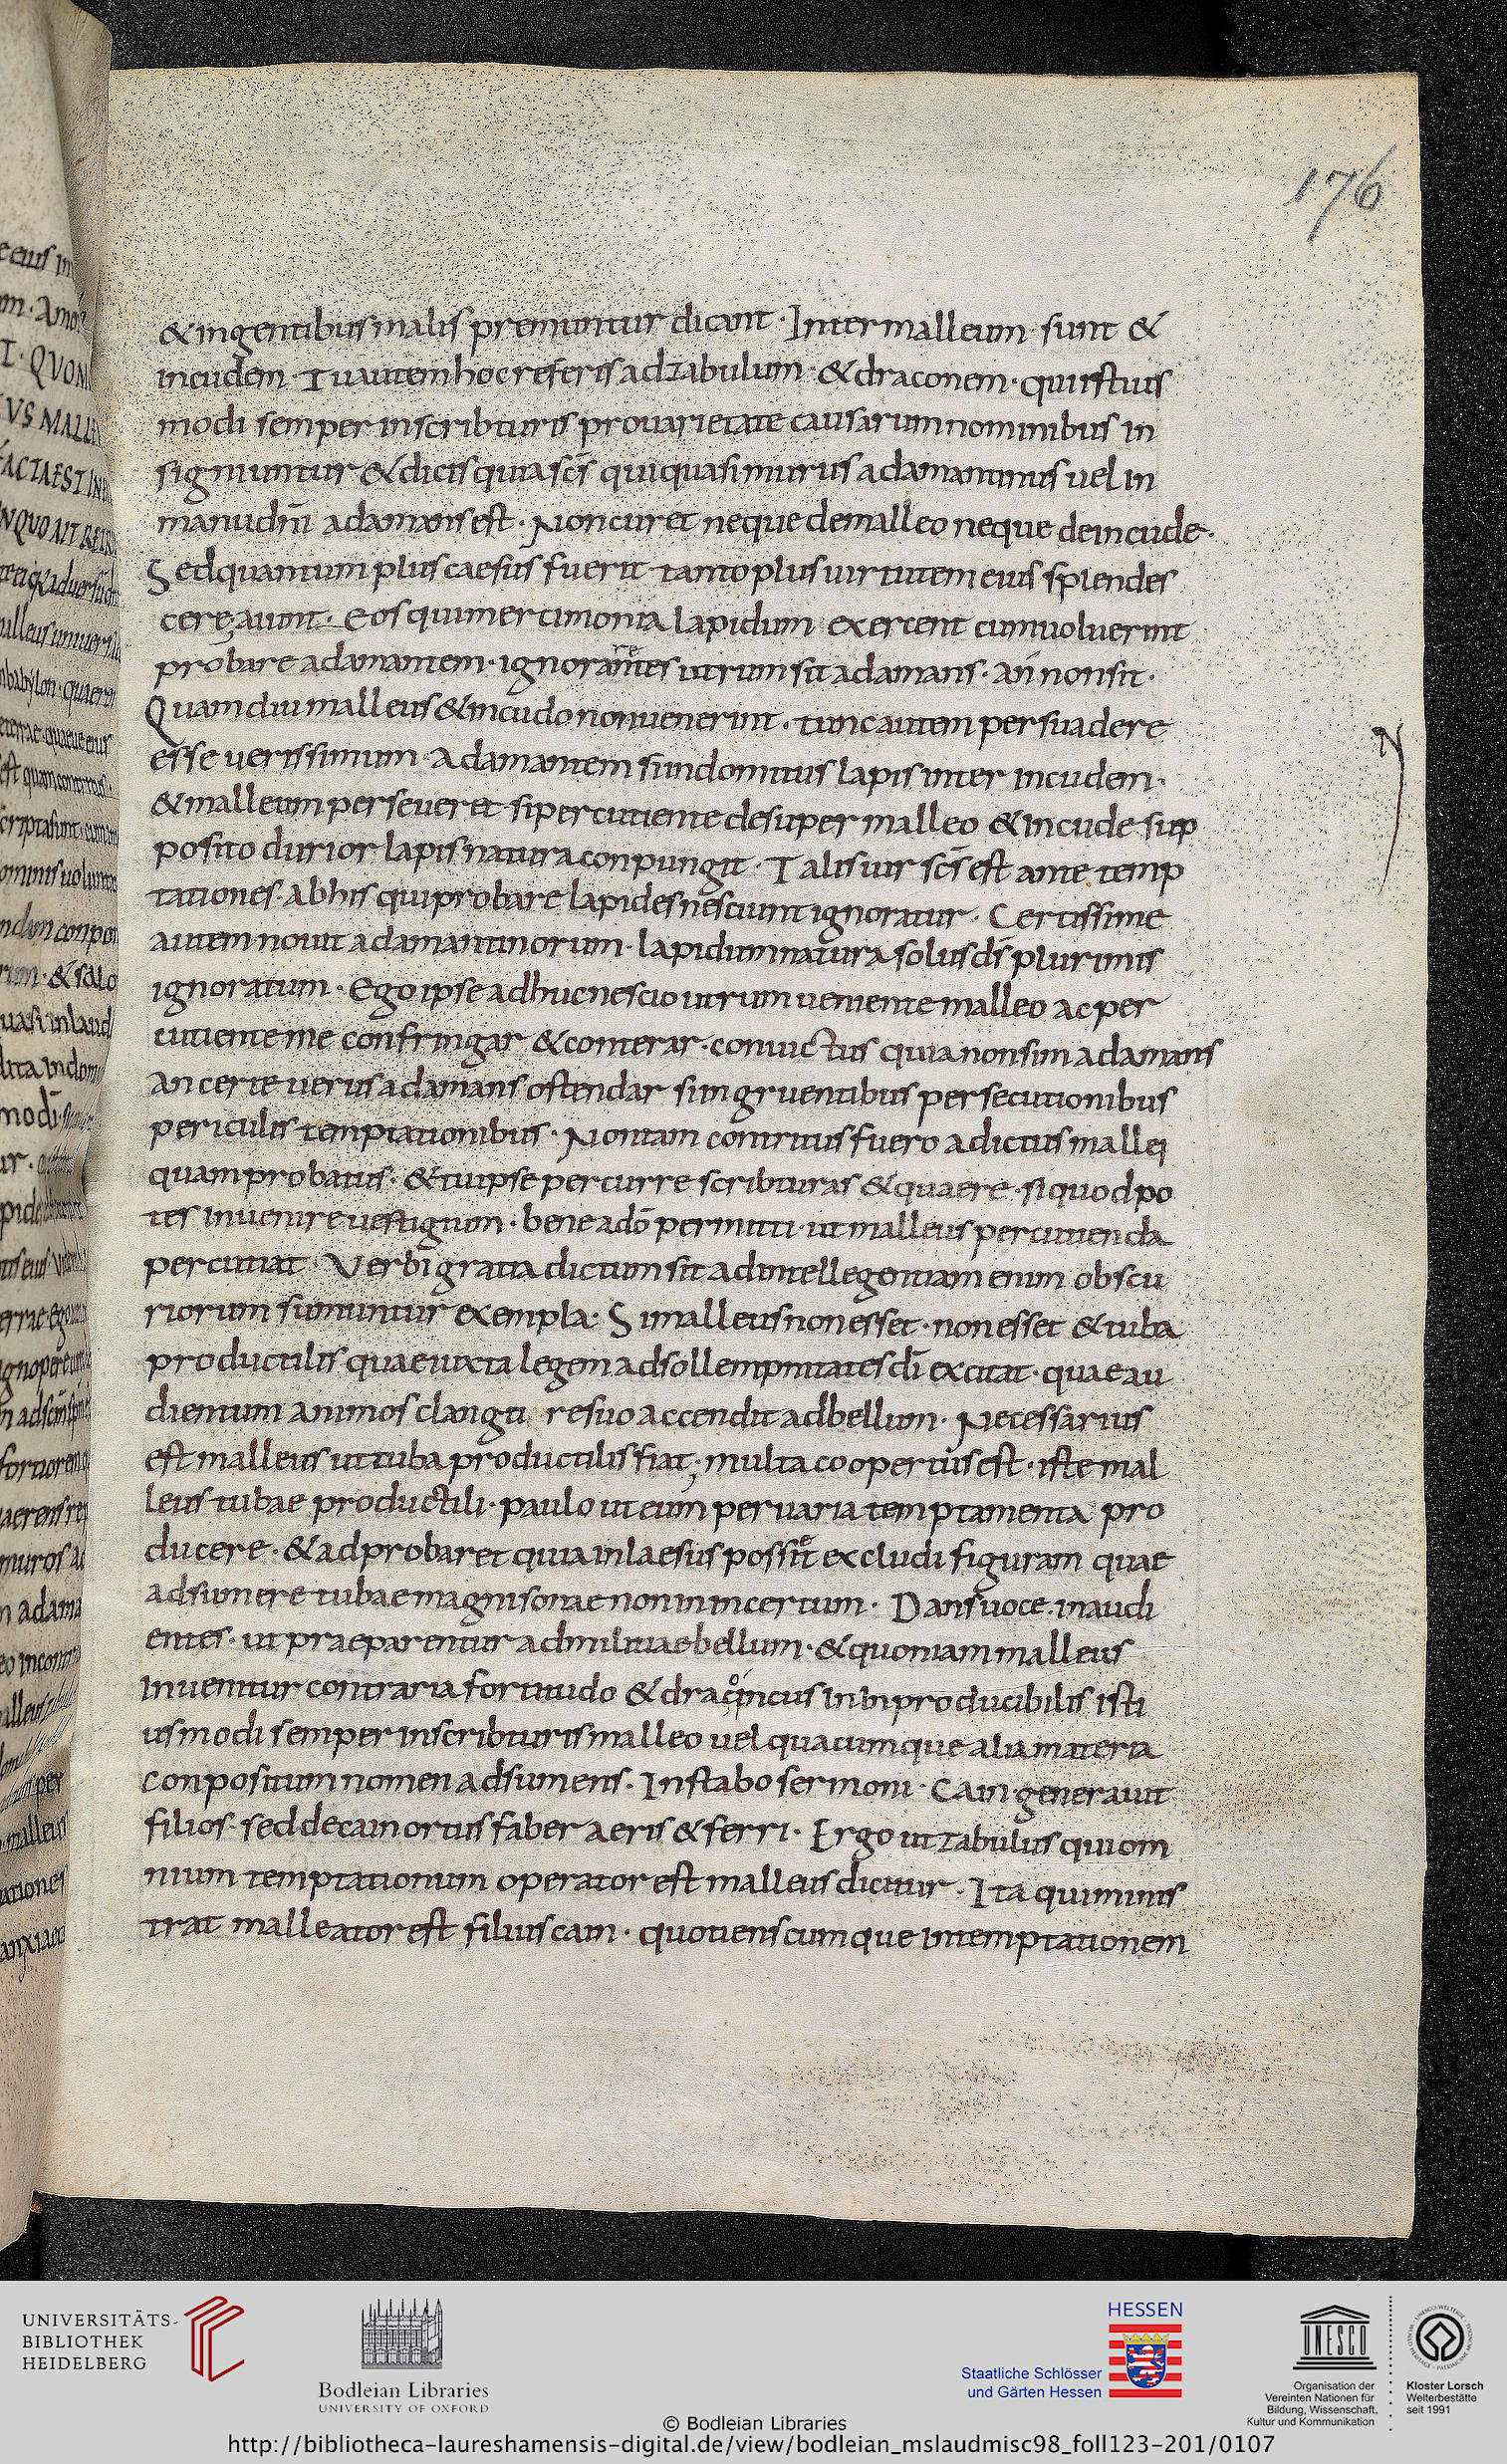 176
& ingentibus malis premuntur dicant · Inter malleum · sunt &
incudem · Tu autem hoc referis ad zabulum · & draconem · qui istius
modi semper in scribturis pro uarietate causarum nominibus in
signiuntur & dicis quia sc̄s qui quasi murus adamantinus uel in
manu dn̄i adamans est · Non curet neque de malleo neque de incude ·
Sed quantum plus caesus fuerit tanto plus uirtutem eius splendes
cere, aiunt · Eos qui mercimonia lapidum exercent cum uoluerint
probare adamantem · ignorantes utrum sit adamans · an non sit ·
Quamdiu malleus & incudo non uenerint · tunc autem persuadere
esse uerissimum Adamantem si indomitus lapis inter incudem ·
& malleum perseueret si percutiente desuper malleo & incude sup
posito durior lapis natura conpungit · Talis uir sc̄s est ante temp
tationes · ab his qui probare lapides nesciunt ignoratur · Certissime
autem nouit adamantinorum · lapidum natura solus ds̄ plurimis
ignoratum · Ego ipse adhuc nescio utrum ueniente malleo ac per
cutiente me confringar & conterar · conuictus quia non sim adamans
an certe uerus adamans ostendar si ingruentibus persecutionibus
periculis temptationibus · Non tam contritus fuero ad ictus mallei
quam probatus · & tu ipse percurre scribturas & quaere · si quod po
tes inuenire uestigium · bene a dō permitti · ut malleus percutienda
percutiat · Verbi gratia dictum sit ad intellegentiam enim obscu
riorum sumuntur exempla · Si malleus non esset · non esset & tuba
productilis quae iuxta legem ad sollempnitates dī excitat · quae au
dientum animos clangu re suo accendit ad bellum · Necessarius
est malleus ut tuba productilis fiat; multa coopertus est · iste mal
leus tubae productili · paulo ut eum per uaria temptamenta pro
ducere · & ad probaret quia inlaesus possit excludi figuram quae
adsumere tubae magnisonae non in incertum · Dans uoce · in audi
entes · ut praeparentur ad militiae bellum · & quoniam malleus
inuenitur contraria fortitudo & draconcus in inproducibilis isti
usmodi semper in scribturis malleo uel quacumque alia materia
conpositum nomen adsumens · Instabo sermoni · Cain generauit
filios · sed de cain ortus faber aeris & ferri · Ergo ut zabulus qui om
nium temptationum operator est malleus dicitur · Ita qui minis
trat malleator est filius cain · quotienscumque in temptationem
UNIVERSITÄTS-
BIBLIOTHEK
HEIDELBERG
Bodleian Libraries
UNIVERSITY OF OXFORD
HESSEN
Staatliche Schlösser
und Gärten Hessen
UNESCO
Organisation der
Vereinten Nationen für
Bildung, Wissenschaft,
Kultur und Kommunikation
Kloster Lorsch
Welterbestätte
seit 1991
© Bodleian Libraries
http://bibliotheca-laureshamensis-digital.de/view/bodleian_mslaudmisc98_foll123-201/0107